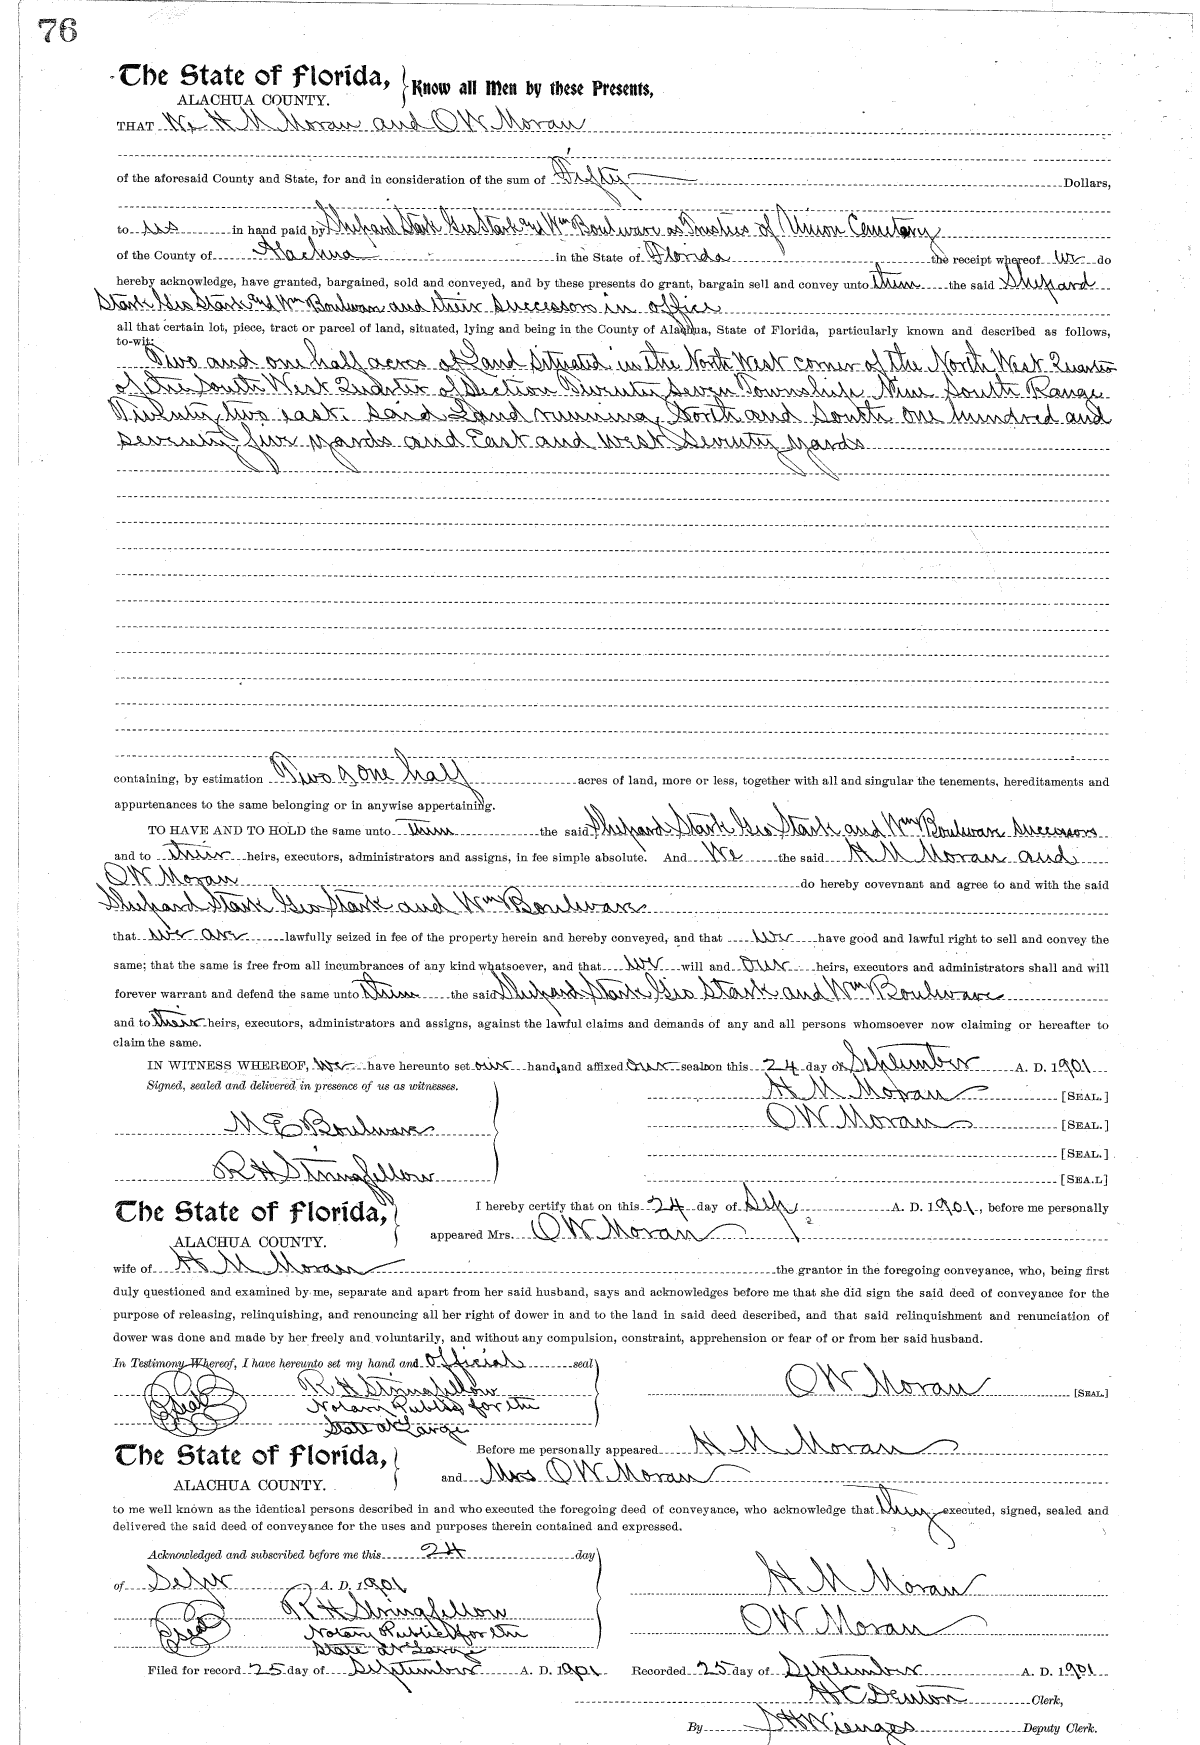 76
The State of Florida, Know all Men by these Presents,
ALACHUA COUNTY.
THAT We H M Moran and O W Moran
of the aforesaid County and State, for and in consideration of the sum of Fifty Dollars,
to us in hand paid by Shepard Stark Geo Stark and Wm Boulware as Trusties of Union Cemetary
of the County of Alachua in the State of Florida the receipt whereof we do
hereby acknowledge, have granted, bargained, sold and conveyed, and by these presents do grant, bargain sell and convey unto them the said Shepard
Stark Geo Stark and Wm Boulware and their successors in office
all that certain lot, piece, tract or parcel of land, situated, lying and being in the County of Alachua, State of Florida, particularly known and described as follows,
to-wit:
Two and one half acres of Land situated in the North West corner of the North West Quarter
of the South West Quarter of Section Twenty Seven Township Nine South Range
Twenty two east. Said Land running North and South one hundred and
seventy five yards and East and West Seventy yards
containing, by estimation Two & one half acres of land, more or less, together with all and singular the tenements, hereditaments and
appurtenances to the same belonging or in anywise appertaining.
TO HAVE AND TO HOLD the same unto Them the said Shepard Stark Geo Stark and Wm Boulware successors
and to their heirs, executors, administrators and assigns, in fee simple absolute. And We the said H M Moran and
O W Moran do hereby covevnant and agree to and with the said
Shepard Stark Geo Stark and Wm Boulware
that we are lawfully seized in fee of the property herein and hereby conveyed, and that we have good and lawful right to sell and convey the
same; that the same is free from all incumbrances of any kind whatsoever, and that we will and our heirs, executors and administrators shall and will
forever warrant and defend the same unto them the said Shepard Stark Geo Stark and Wm Boulware
and to their heirs, executors, administrators and assigns, against the lawful claims and demands of any and all persons whomsoever now claiming or hereafter to
claim the same.
IN WITNESS WHEREOF, we have hereunto set our hand, and affixed our seal on this 24 day of September A. D. 1901
Signed, sealed and delivered in presence of us as witnesses. H M Moran [SEAL.]
M E Boulware O W Moran [SEAL.]
[SEAL.]
R H Stringfellow [SEA.L]
The State of Florida, I hereby certify that on this 24 day of Sep A. D. 1901, before me personally
ALACHUA COUNTY. appeared Mrs. O W Moran
wife of H M Moran the grantor in the foregoing conveyance, who, being first
duly questioned and examined by me, separate and apart from her said husband, says and acknowledges before me that she did sign the said deed of conveyance for the
purpose of releasing, relinquishing, and renouncing all her right of dower in and to the land in said deed described, and that said relinquishment and renunciation of
dower was done and made by her freely and voluntarily, and without any compulsion, constraint, apprehension or fear of or from her said husband.
In Testimony Whereof, I have hereunto set my hand and official seal
Seal R H Stringfellow O W Moran [SEAL.]
Notary Public for the
State at Large
The State of Florida, Before me personally appeared H M Moran
ALACHUA COUNTY. and Mrs O W Moran
to me well known as the identical persons described in and who executed the foregoing deed of conveyance, who acknowledge that they executed, signed, sealed and
delivered the said deed of conveyance for the uses and purposes therein contained and expressed.
Acknowledged and subscribed before me this 24 day
of Sept A. D. 1901 H M Moran
Seal R H Stringfellow O W Moran
Notary Public for the
State at Large
Filed for record 25 day of September A. D. 1901 Recorded 25 day of September A. D. 1901
H C Denton Clerk,
By Deputy Clerk.